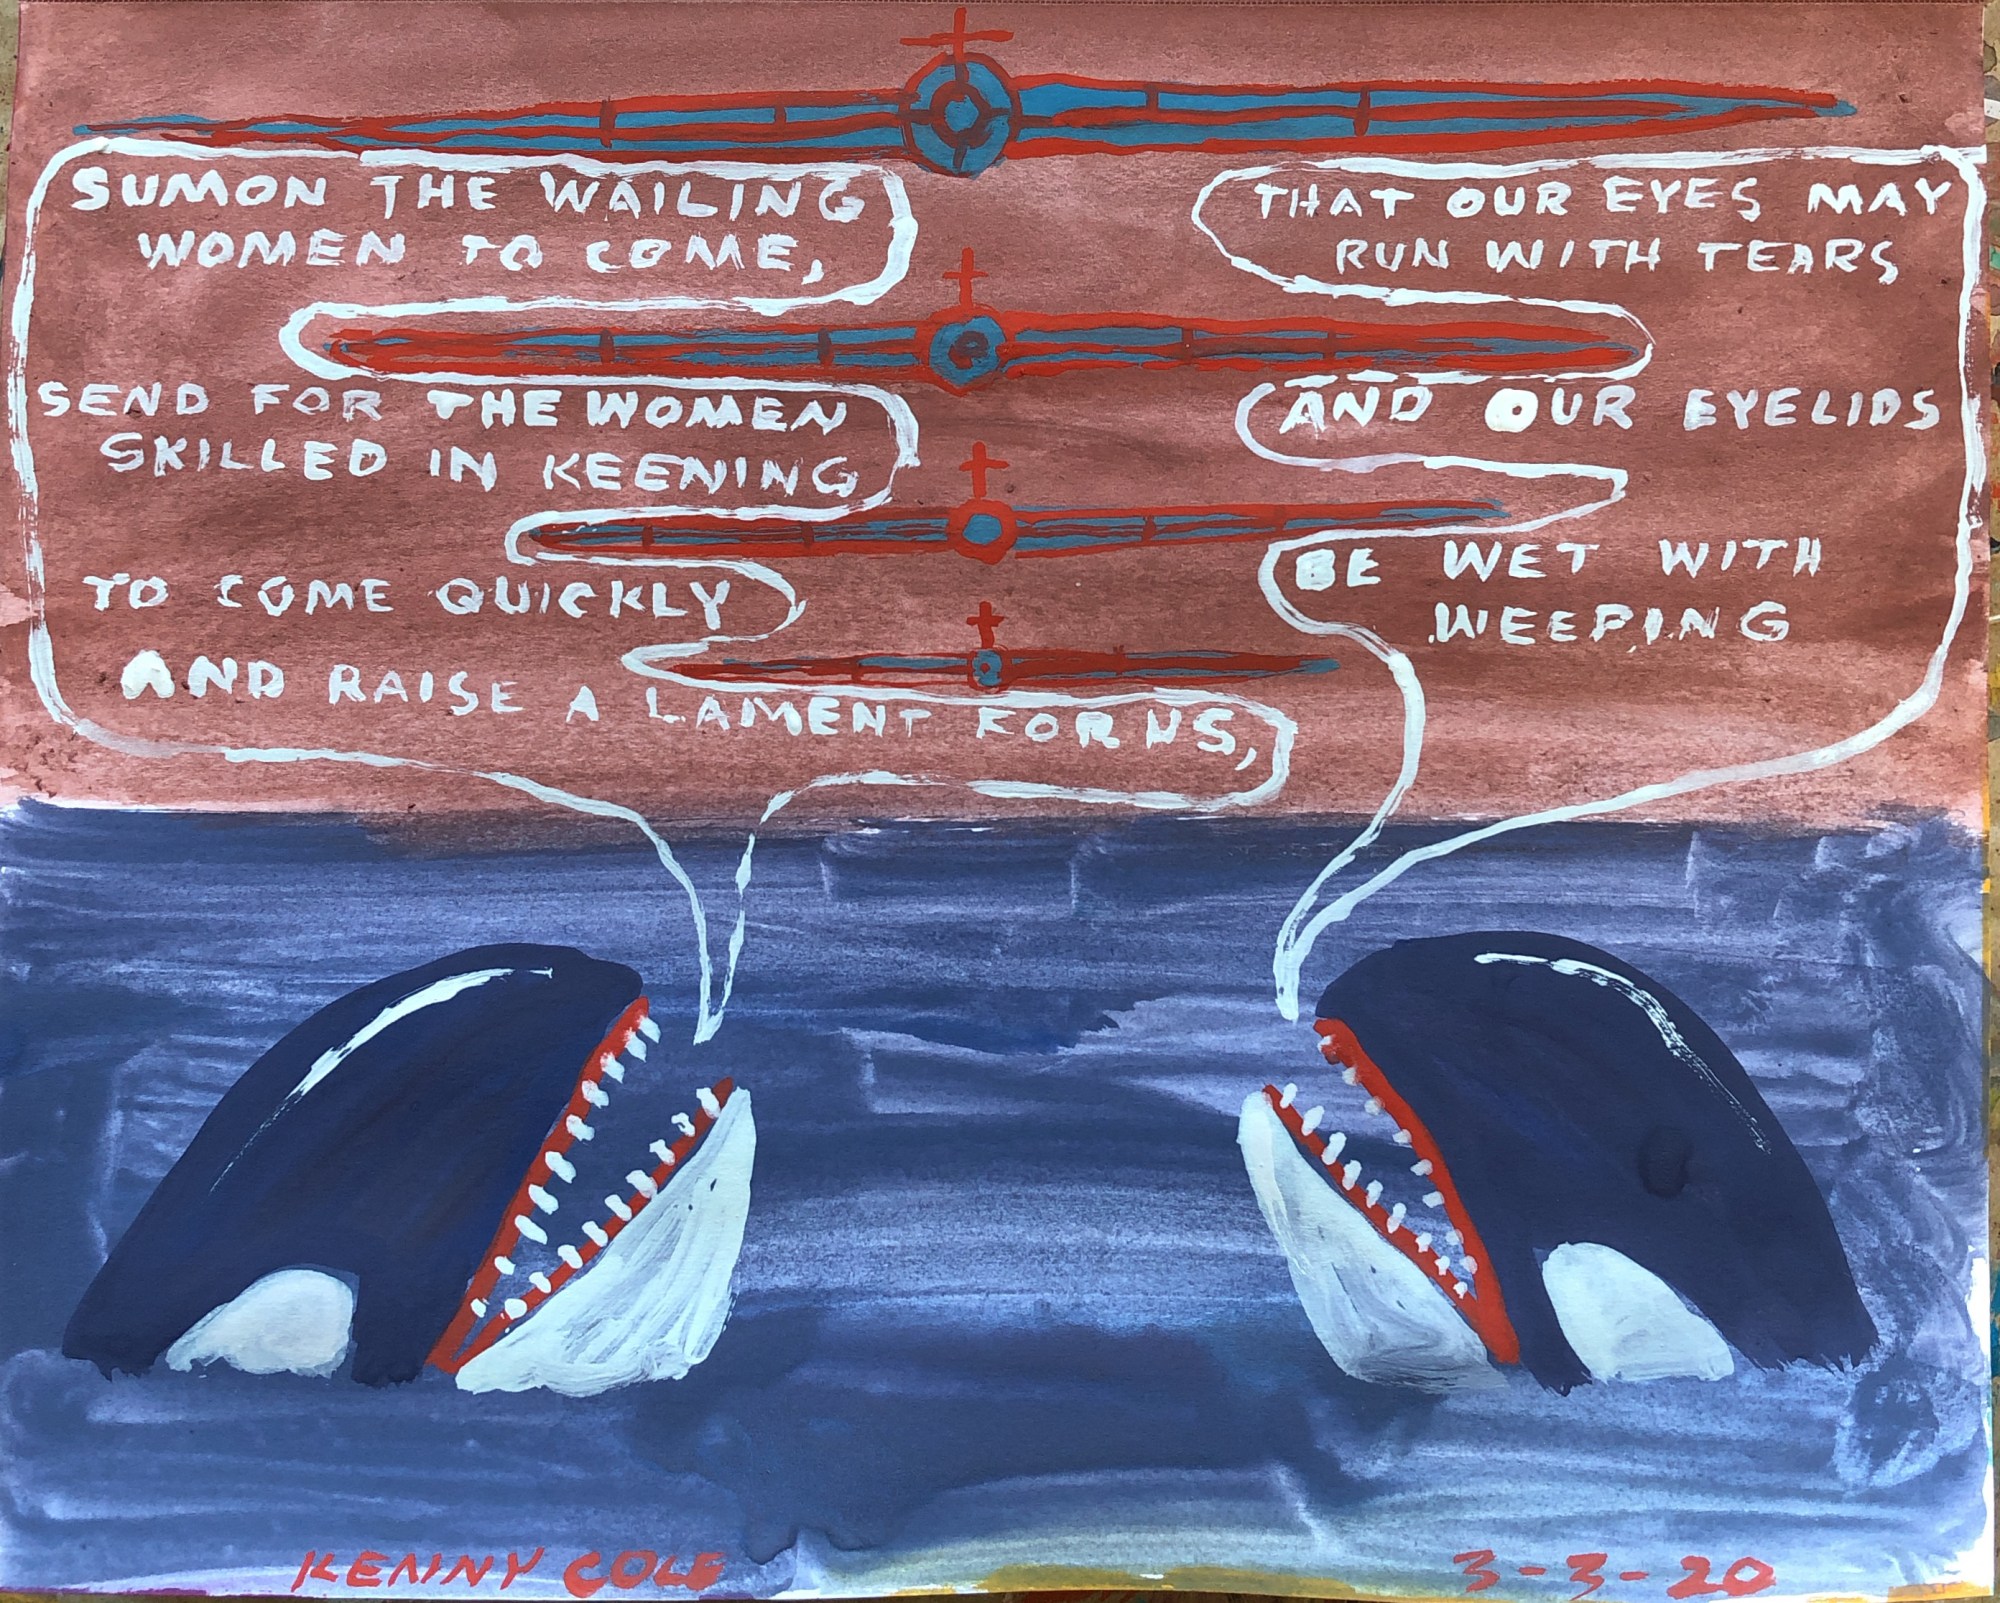 SUMON THE WAILING
WOMEN TO COME,
SEND FOR THE WOMEN
SKILLED IN KEENING
TO COME QUICKLY
AND RAISE A LAMENT FOR US,
THAT OUR EYES MAY
RUN WITH TEARS
AND OUR EYELIDS
BE WET WITH
WEEPING
KENNY COLE
3-3-20